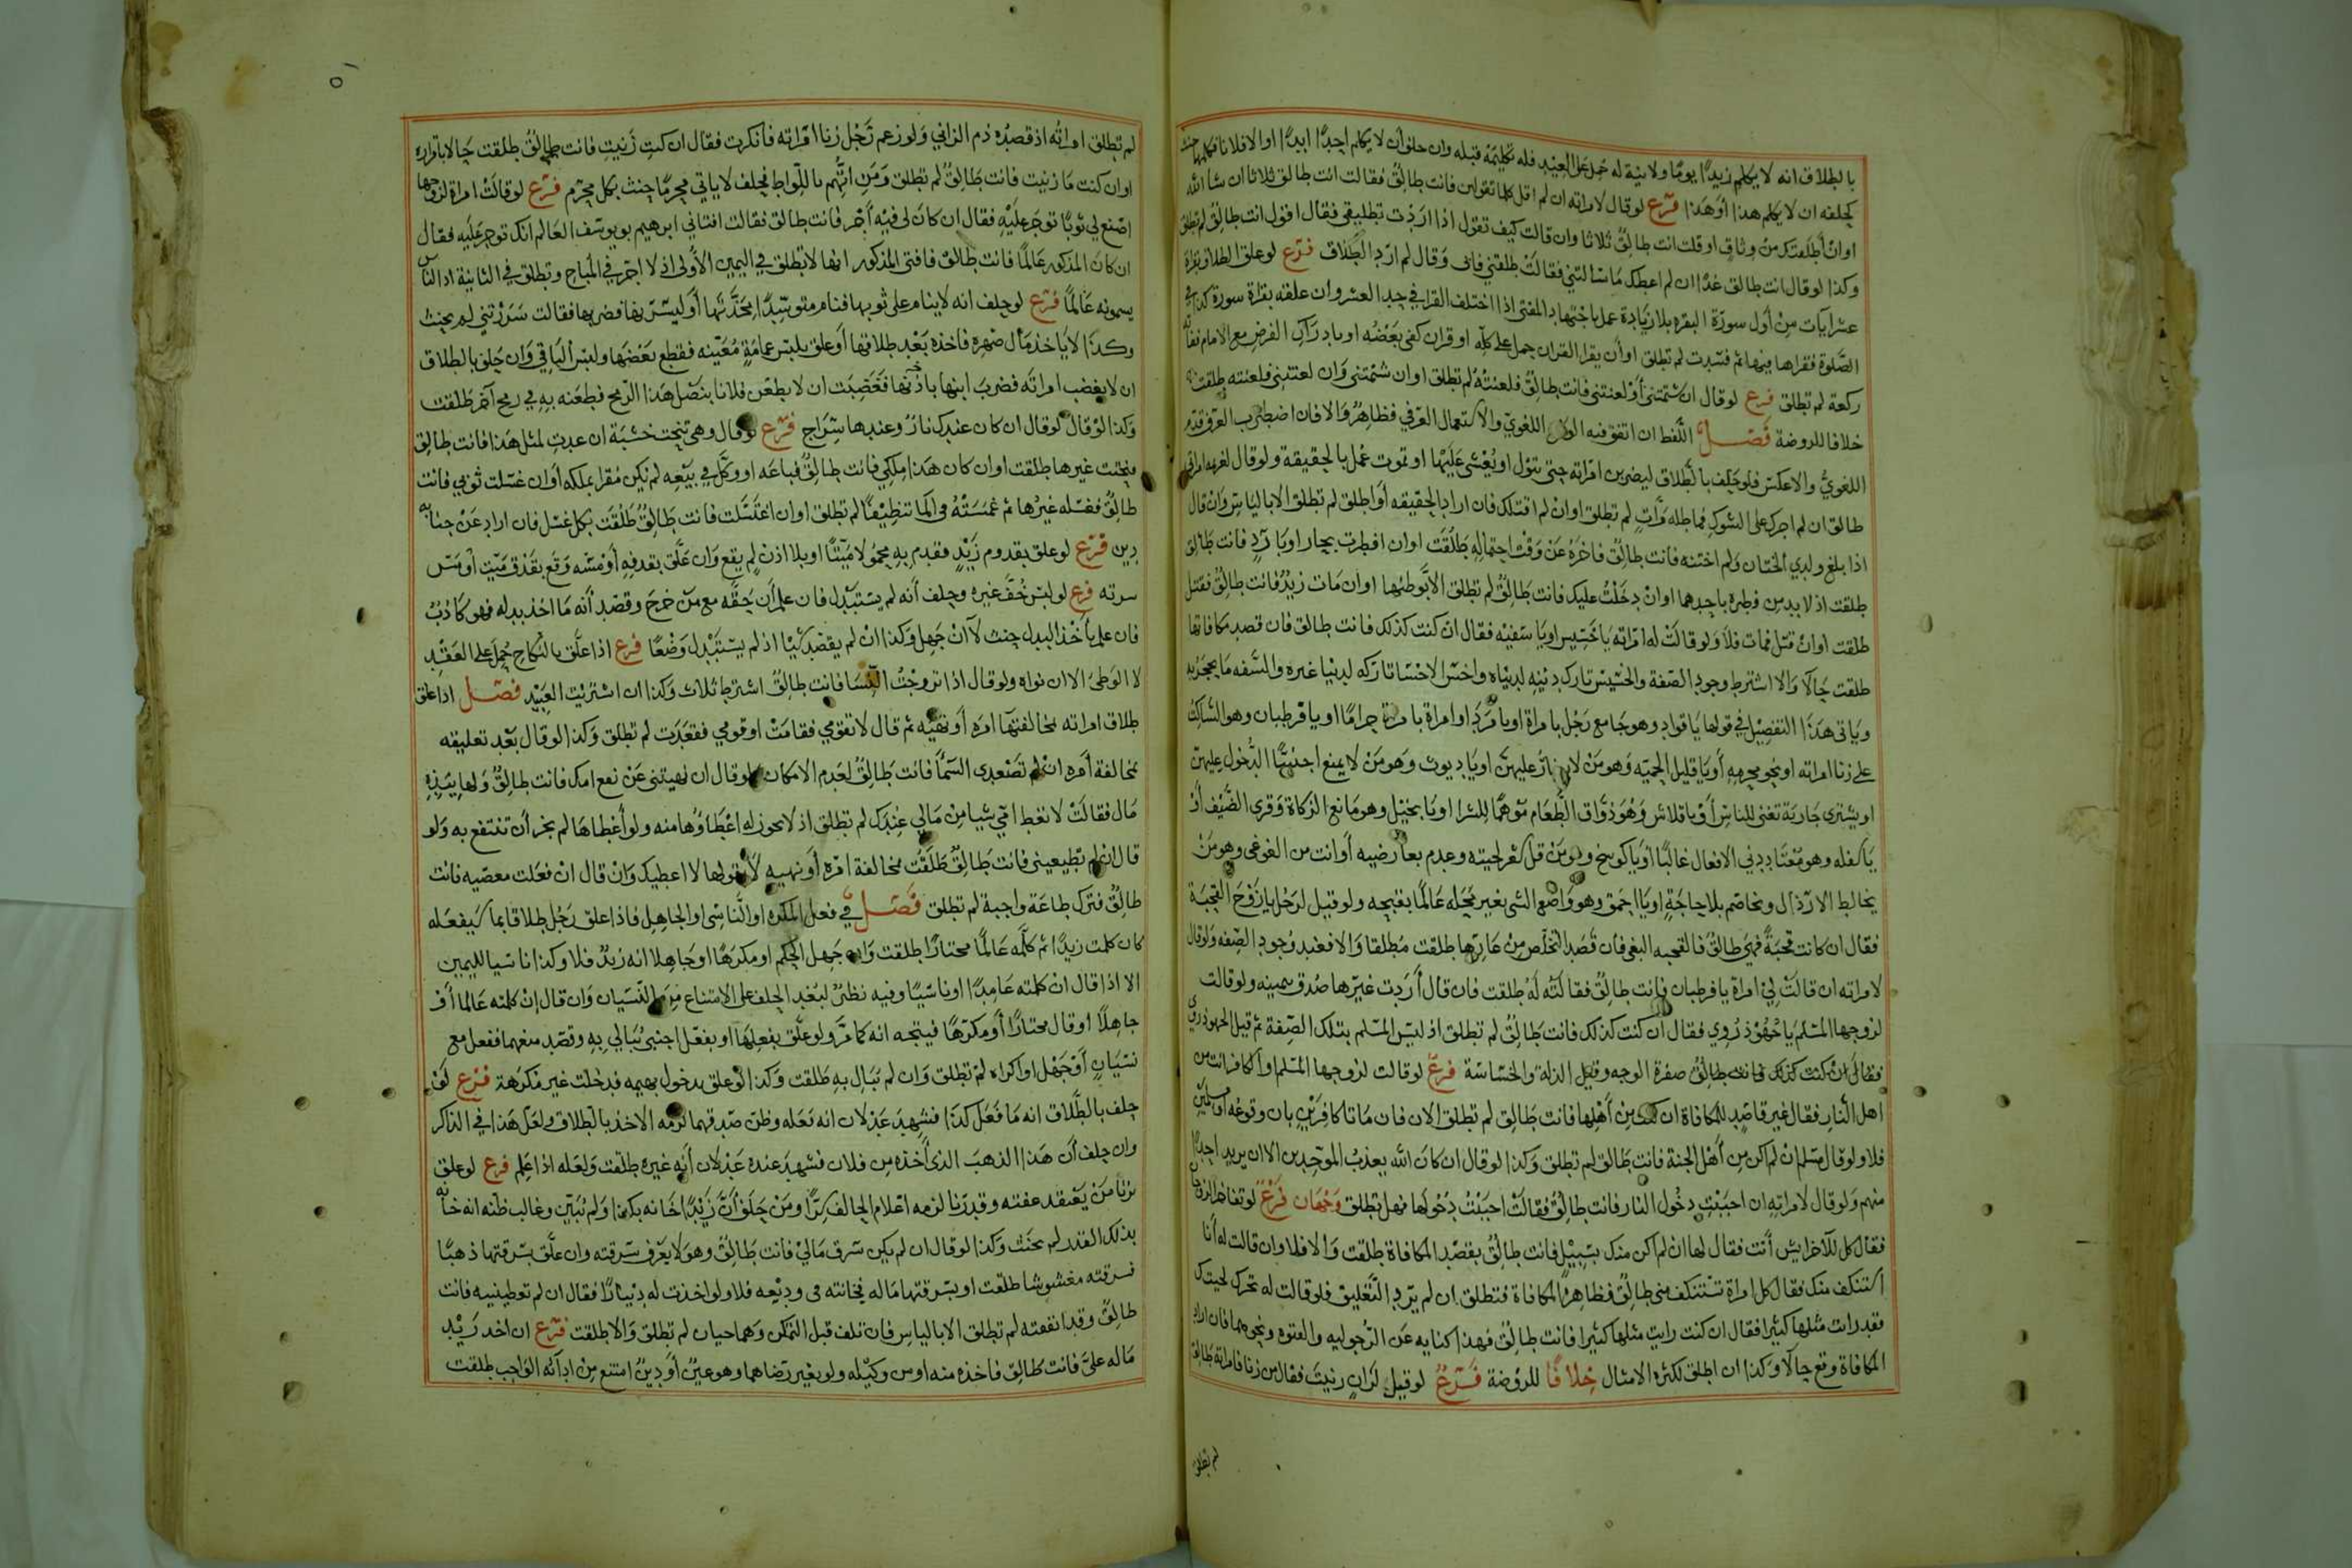 بالطلاق انه لا يكلم زيدًا يومًا ولا نية له حمل على العيد فله تكليمه قبله وان حلف أن لا يكلم احدًا ابدًا او الا فلانا فكلمها حنث
كحلفه ان لا يكلم هذا أو هذا فرع لو قال لامراته ان لم اقل كما تقولين فانت طالق فقالت انت طالق ثلاثا ان شا الله
او ان أطلقتك من وثاق او قلت انت طالق ثلاثا وان قالت كيف تقول اذا اردت تطليقي فقال اقول انت طالق لم تطلق
وكذا لو قال انت طالق غدًا ان لم اعطك ما سالتني فقالت طلقتني فاني وقال لم ارد الطلاق فرع لو علق الطلاق بقراة
عشر ايات من أول سورة البقره بلا زيادة عمل باجتهاد المفتي اذا اختلف القرا في حد العشر وان علقه بقراة سورة كذا في
الصلوة فقراها فيها ثم فسدت لم تطلق او أن يقرا القران حمل على كله او قران كفى بعضه او بادراك الفرض مع الامام
ركعة لم تطلق فرع لو قال ان شتمتني أو لعنتني فانت طالق فلعنته لم تطلق او ان شتمتني وان لعنتني فلعنته طلقت
خلافا للروضة فصل اللفظ ان اتفق فيه الوضع اللغوي والاستعمال العرفي فظاهر والا فان اضطرب العرف قدم
اللغوي والا عكس فلو حلف بالطلاق ليضربن امراته حتى تبول او يغشى عليها او تموت عمل بالحقيقة ولو قال لغريمه امراتي
طالق ان لم اجرك على الشوك فماطله مرات لم تطلق او ان لم اقتلك فان اراد الحقيقه أو اطلق لم تطلق الا بالياس وان قال
اذا بلغ ولدي الختان ولم اختنه فانت طالق فاخره عن وقت احتماله طلقت او ان افطرت بحار او بارد فانت طالق
طلقت اذ لا بد من فطره باحدهما او ان دخلت عليك فانت طالق لم تطلق الا بوطئها او ان مات زيد فانت طالق فقتل
طلقت او ان قتل فمات فلا ولو قالت له امراته يا خسيس او يا سفيه فقال ان كنت كذلك فانت طالق فان قصد مكافاتها
طلقت حالا والا اشترط وجود الصفة والخسيس تارك دينه لدنياه واخس الاخسا تاركه لدنيا غيره والسفه ما يحجر به
وياتي هذا التفصيل في قولها يا قواد وهو جامع رجل بامراة او بامرد او امراة بامراة حرامًا او يا قرطبان وهو الساكت
على زنا امراته او نحو محرمه أو يا قليل الحميه وهو من لا يغار عليهن او يا ديوث وهو من لا يمنع اجنبيًا الدخول عليهن
او يشتري جارية تغني للناس أو يا قلاش وهو ذواق الطعام موهمًا للشرا او يا بخيل وهو مانع الزكاة وقرى الضيف أو
يا سفله وهو معتاد دنى الافعال غالبًا أو يا كوسج وهو من قل شعر لحيته وعدم بعارضيه أو انت من الغوغى وهو من
يخالط الارذال ويخاصم بلا حاجة او يا احمق وهو واضع الشى بغير محله عالمًا بقبحه ولو قيل لرجل يا زوج القحبة
فقال ان كانت قحبة فهي طالق فالقحبه البغي فان قصد التخلص من عارها طلقت مطلقا والا فعند وجود الصفه ولو قال
لامراته ان قالت لي امراة يا قرطبان فانت طالق فقالته له طلقت فان قال أردت غيرها صدق بيمينه ولو قالت
لزوجها المسلم يا جهودروي فقال ان كنت كذلك فانت طالق لم تطلق اذ ليس المسلم بتلك الصفة ثم قيل
فقال ان كنت كذلك فانت طالق صفرة الوجه وقيل الذلة والخساسة فرع لو قالت لزوجها المسلم او الكافر انت من
اهل النار فقال غير قاصد للمكافاة ان كنت من أهلها فانت طالق لم تطلق الان فان ماتا كافرين بان وقوعه او مسلمين
فلا ولو قال مسلم ان لم اكن من أهل الجنة فانت طالق لم تطلق وكذا لو قال ان كان الله يعذب الموحدين الا ان يريد احدًا
منهم ولو قال لامراته ان احببت دخول النار فانت طالق فقالت احببت دخولها فهل تطلق وجهان فرع
فقال كل للاخر ايش أنت فقال لها ان لم اكن منك بسبيل فانت طالق بقصد المكافاة طلقت والا فلا وان قالت له أنا
استنكف منك فقال كل امراة تستنكف مني طالق فظاهره المكافاة فتطلق ان لم يرد التعليق فلو قالت له تحرك لحيتك
فقد رات مثلها كثيرا فقال ان كنت رايت مثلها كثيرا فانت طالق فهذا كنايه عن الرجوليه والفتوه ونحوهما فان اراد
المكافاة وقع حالا وكذا ان اطلق لكثرة الامثال خلافًا للروضة فرع لو قيل لزان زنيت فقال من زنا فامراته طالق
لم تطلق
٥١
لم تطلق امراته اذ قصده ذم الزاني ولو زعم رجل زنا امراته فانكرت فقال ان كنت زنيت فانت طالق طلقت حالا باقراره
او ان كنت ما زنيت فانت طالق لم تطلق ومن اتهم باللواط فحلف لا ياتي محرمًا حنث بكل محرم فرع لو قالت امراة لزوجها
اصنع لي ثوبًا توجر عليه فقال ان كان لي فيه أجر فانت طالق فقالت افتاني ابرهيم بن يوسف العالم انك توجر عليه فقال
ان كان المذكور عالمًا فانت طالق فافتى المذكور انها لا تطلق في اليمين الأولى اذ لا اجر في المباح وتطلق في الثانية اذ الناس
يسمونه عالمًا فرع لو حلف انه لا ينام على ثوبها فنام متوسدًا مخدتها أو ليسرن بها فضربها فقالت سررتني لم يحنث
وكذا لا ياخذ مال صهره فاخذه بعد طلاقها أو علق بلبس عمامة معينه فقطع بعضها ولبس الباقي وان حلف بالطلاق
ان لا يغضب امراته فضرب ابنها باذنها فغضبت ان لا يطعن فلانا بنصل هذا الرمح فطعنه به في رمح آخر طلقت
وكذا لو قال لو قال ان كان عندك نار وعندها سراج فرع لو قال وهي تنحت خشبة ان عدت لمثل هذا فانت طالق
فنحتت غيرها طلقت او ان كان هذا ملكي فانت طالق فباعه او وكل في بيعه لم يكن مقرا بملكه أو ان غسلت ثوبي فانت
طالق فغسله غيرها ثم غمسته في الما تنظيفًا لم تطلق او ان اغتسلت فانت طالق طلقت بكل غسل فان اراد عن جنابة
دين فرع لو علق بقدوم زيد فقدم به محمولا ميتًا او بلا اذن لم يقع وان علق بقذفه أو مسه وقع بقذف ميت أو مس
سرته فرع لو لبس خف غيره وحلف أنه لم يستبدل فان علم أن خفه مع من خرج وقصد أنه ما اخذ بدله فهو كاذب
فان علم باخذ البدل حنث لا ان جهل وكذا ان لم يقصد شيئا اذ لم يستبدل وضعًا فرع اذا علق بالنكاح حمل على العقد
لا الوطئ الا ان نواه ولو قال اذا تزوجت النسا فانت طالق اشترط ثلاث وكذا ان اشتريت العبيد فصل اذا علق
طلاق امراته بمخالفتها امره أو نهيه ثم قال لا تقومي فقامت او قومي فقعدت لم تطلق وكذا لو قال بعد تعليقه
بمخالفة أمره ان لم تصعدي السمأ فانت طالق لعدم الامكان ولو قال ان نهيتني عن نفع امك فانت طالق ولها بيده
مال فقالت لا تعط امي شيا من مالي عندك لم تطلق اذ لا يجوز له اعطاوها منه ولو أعطاها لم يجز أن تنتفع به ولو
قال ان لم تطيعيني فانت طالق طلقت بمخالفة امره أو نهيه لا بقولها لا اعطيك وان قال ان فعلت معصيه فانت
طالق فترك طاعة واجبة لم تطلق فصل في فعل المكره او الناسي او الجاهل فاذا علق رجل طلاقا بما كيفعله
كان كلمت زيدًا ثم كلمه عالمًا مختارًا طلقت وان جهل الحكم او مكرهًا او جاهلا انه زيد فلا وكذا ناسيا لليمين
الا اذا قال ان كلمته عامدًا او ناسيًا وفيه نظر لبعد الحلف على الامتناع من النسيان وان قال إن كلمته عالما أو
جاهلًا او قال مختارًا أو مكرهًا فيتجه انه كما مر ولو علق بفعلها او بفعل اجنبي تبالي به وقصد منعهما ففعل مع
نسيان أو جهل او اكراه لم تطلق وان لم يبال به طلقت وكذا لو علق بدخول بهيمه فدخلت غير مكرهة فرع لو
حلف بالطلاق انه ما فعل كذا فشهد عدلان انه فعله وظن صدقهما لزمه الاخذ بالطلاق ولعل هذا في الذاكر
وان حلف أن هذا الذهب الذي أخذه من فلان فشهد عنده عدلان أنه غيره طلقت ولعله اذا علم فرع لو علق
بزنا من يعتقد عفته وقد زنا لزمه اعلام الحالف سرًا ومن حلف أن زيدًا خانه بكذا ولم يتبين وغالب ظنه انه خانه
بذلك القدر لم يحنث وكذا لو قال ان لم يكن سرق مالي فانت طالق وهو لا يعرف سرقته وان علق بسرقتها ذهبًا
فسرقته مغشوشا طلقت او بسرقتها ماله فخانته في وديعه فلا ولو اخذت له دينارًا فقال ان لم تعطينيه فانت
طالق وقد انفقته لم تطلق الا بالياس فان تلف قبل التمكن وهما حيان لم تطلق والا طلقت فرع ان اخذ زيد
ماله علي فانت طالق فاخذه منه او من وكيله ولو بغير رضاهما وهو عين أو دين امتنع من ادائه الواجب طلقت